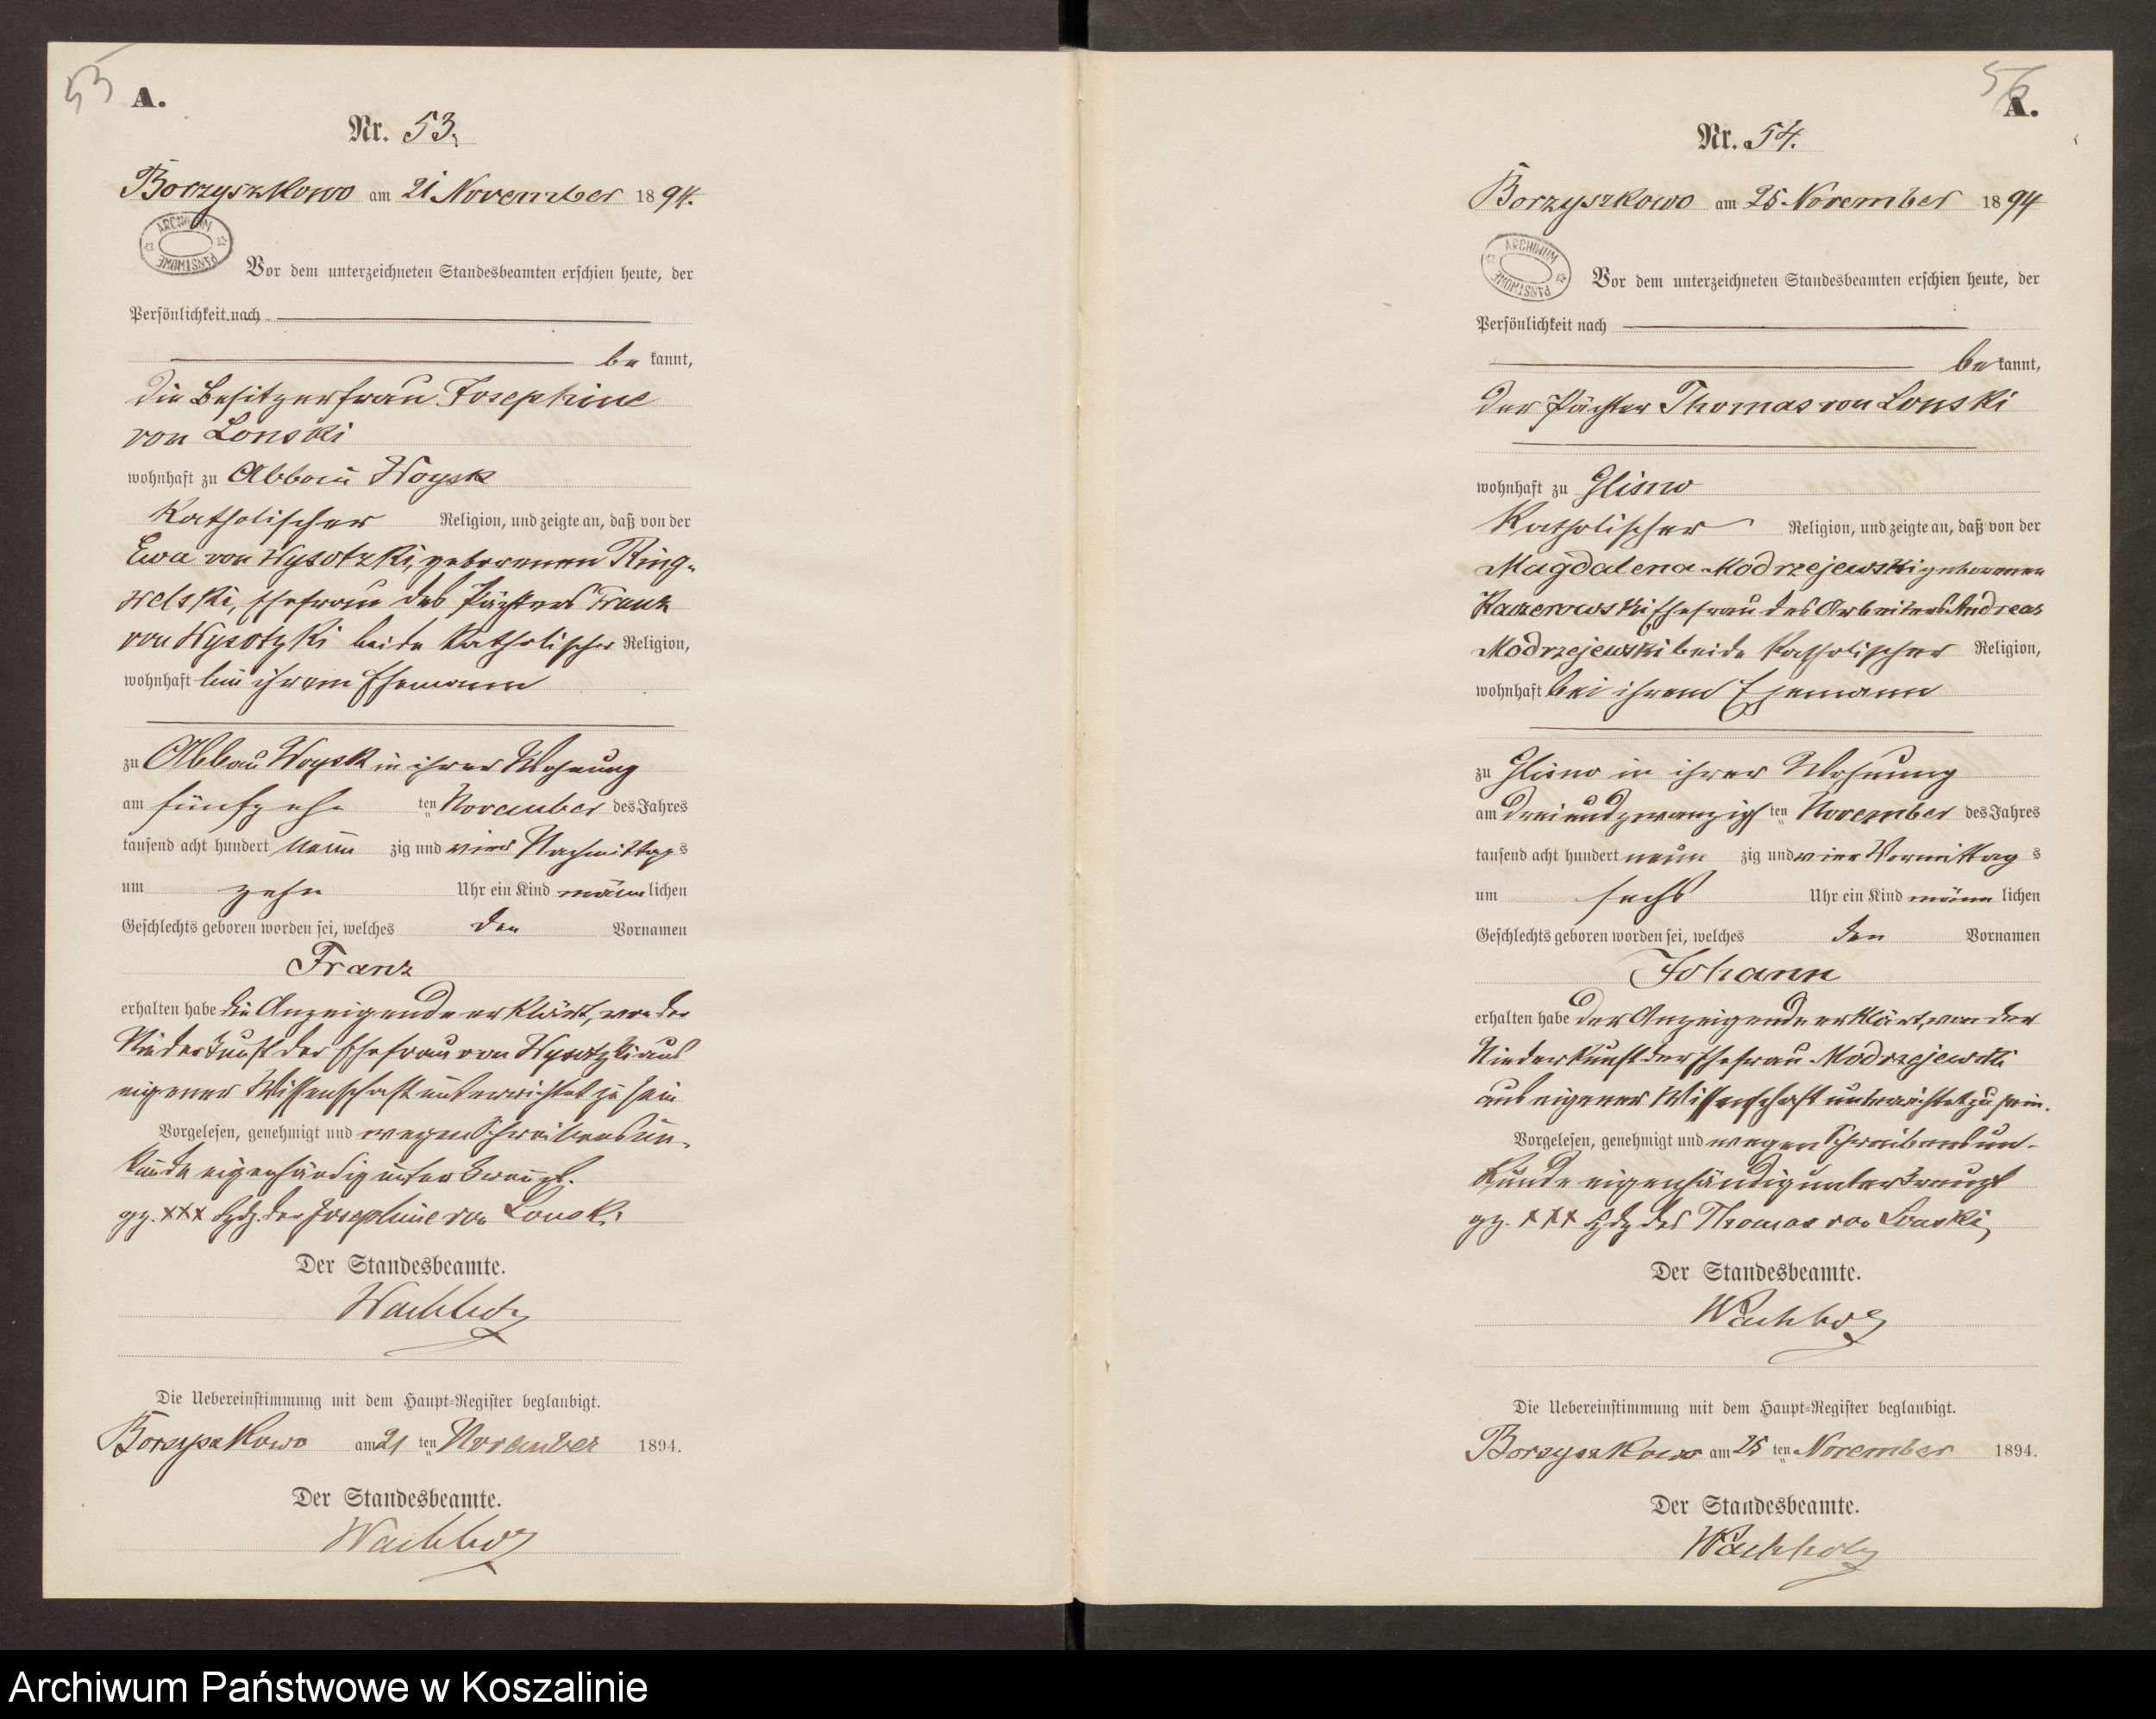 53
A.
Nr. 53.
Borzyszkowo am 21 November 1894.
ARCHIWUM PAŃSTWOWE
Vor dem unterzeichneten Standesbeamten erschien heute, der
Persönlichkeit nach
bekannt,
die Besitzerfrau Josephine
von Lonski
wohnhaft zu Abbau Woysk
katholischer Religion, und zeigte an, daß von der
Ewa von Wysotzki, geborenen Ring-
welski, Ehefrau des Pächters Franz
von Wysotzki beide katholischer Religion,
wohnhaft bei ihrem Ehemann
zu Abbau Woysk in ihrer Wohnung
am fünfzehnten November des Jahres
tausend acht hundert neunzig und vier Nachmittags
um zehn Uhr ein Kind männlichen
Geschlechts geboren worden sei, welches den Vornamen
Franz
erhalten habe die Anzeigende erklärt, von der
Niederkunft der Ehefrau von Wysotzki aus
eigener Wissenschaft unterrichtet zu sein
Vorgelesen, genehmigt und wegen Schreibensun-
kunde eigenhändig unterkreuzt.
gz. xxx Hdz. der Josephine von Lonski
Der Standesbeamte.
Wachholz
Die Uebereinstimmung mit dem Haupt-Register beglaubigt.
Borzyszkowo am 21ten November 1894.
Der Standesbeamte.
Wachholz
A.
Nr. 54.
Borzyszkowo am 25 November 1894
ARCHIWUM PAŃSTWOWE
Vor dem unterzeichneten Standesbeamten erschien heute, der
Persönlichkeit nach
bekannt,
der Pächter Thomas von Lonski
wohnhaft zu Glisno
katholischer Religion, und zeigte an, daß von der
Magdalena Modrzejewski geborenen
Ehefrau des Arbeiters Andreas
Modrzejewski beide katholischer Religion,
wohnhaft bei ihrem Ehemann
zu Glisno in ihrer Wohnung
am dreiundzwanzigsten November des Jahres
tausend acht hundert neunzig und vier Vormittags
um sechs Uhr ein Kind männlichen
Geschlechts geboren worden sei, welches den Vornamen
Johann
erhalten habe der Anzeigende erklärt, von der
Niederkunft der Ehefrau Modrzejewski
aus eigener Wissenschaft unterrichtet zu sein.
Vorgelesen, genehmigt und wegen Schreibensun-
kunde eigenhändig unterkreuzt
gz. xxx Hdz des Thomas von Lonski,
Der Standesbeamte.
Wachholz
Die Uebereinstimmung mit dem Haupt-Register beglaubigt.
Borzyszkowo am 25ten November 1894.
Der Standesbeamte.
Wachholz
Archiwum Państwowe w Koszalinie